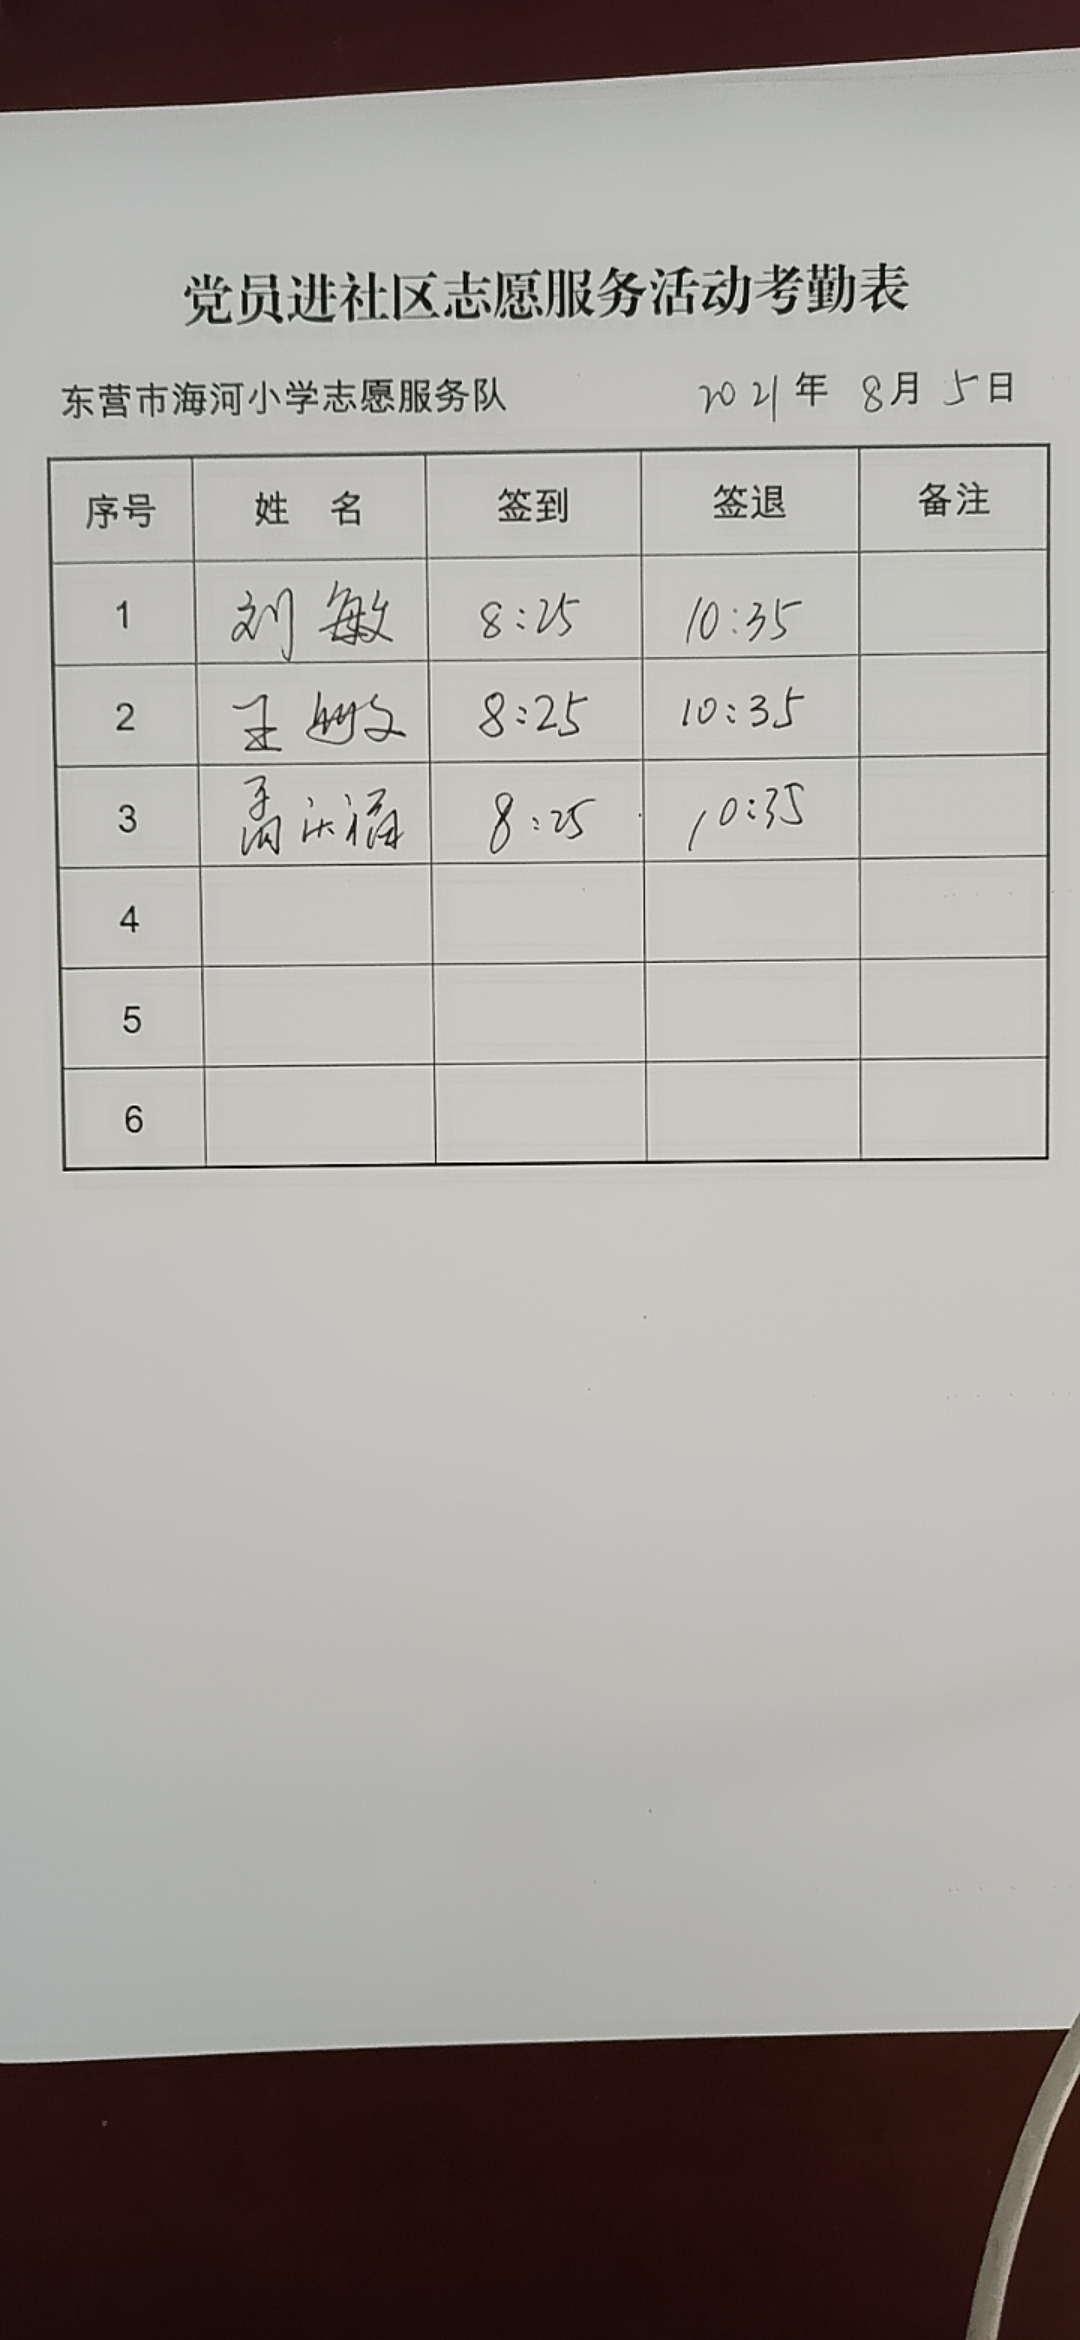 党员进社区志愿服务活动考勤表
东营市海河小学志愿服务队 2021年 8月 5日
序号 姓 名 签到 签退 备注
1 刘敏 8:25 10:35
2 王 8:25 10:35
3 8:25 10:35
4
5
6